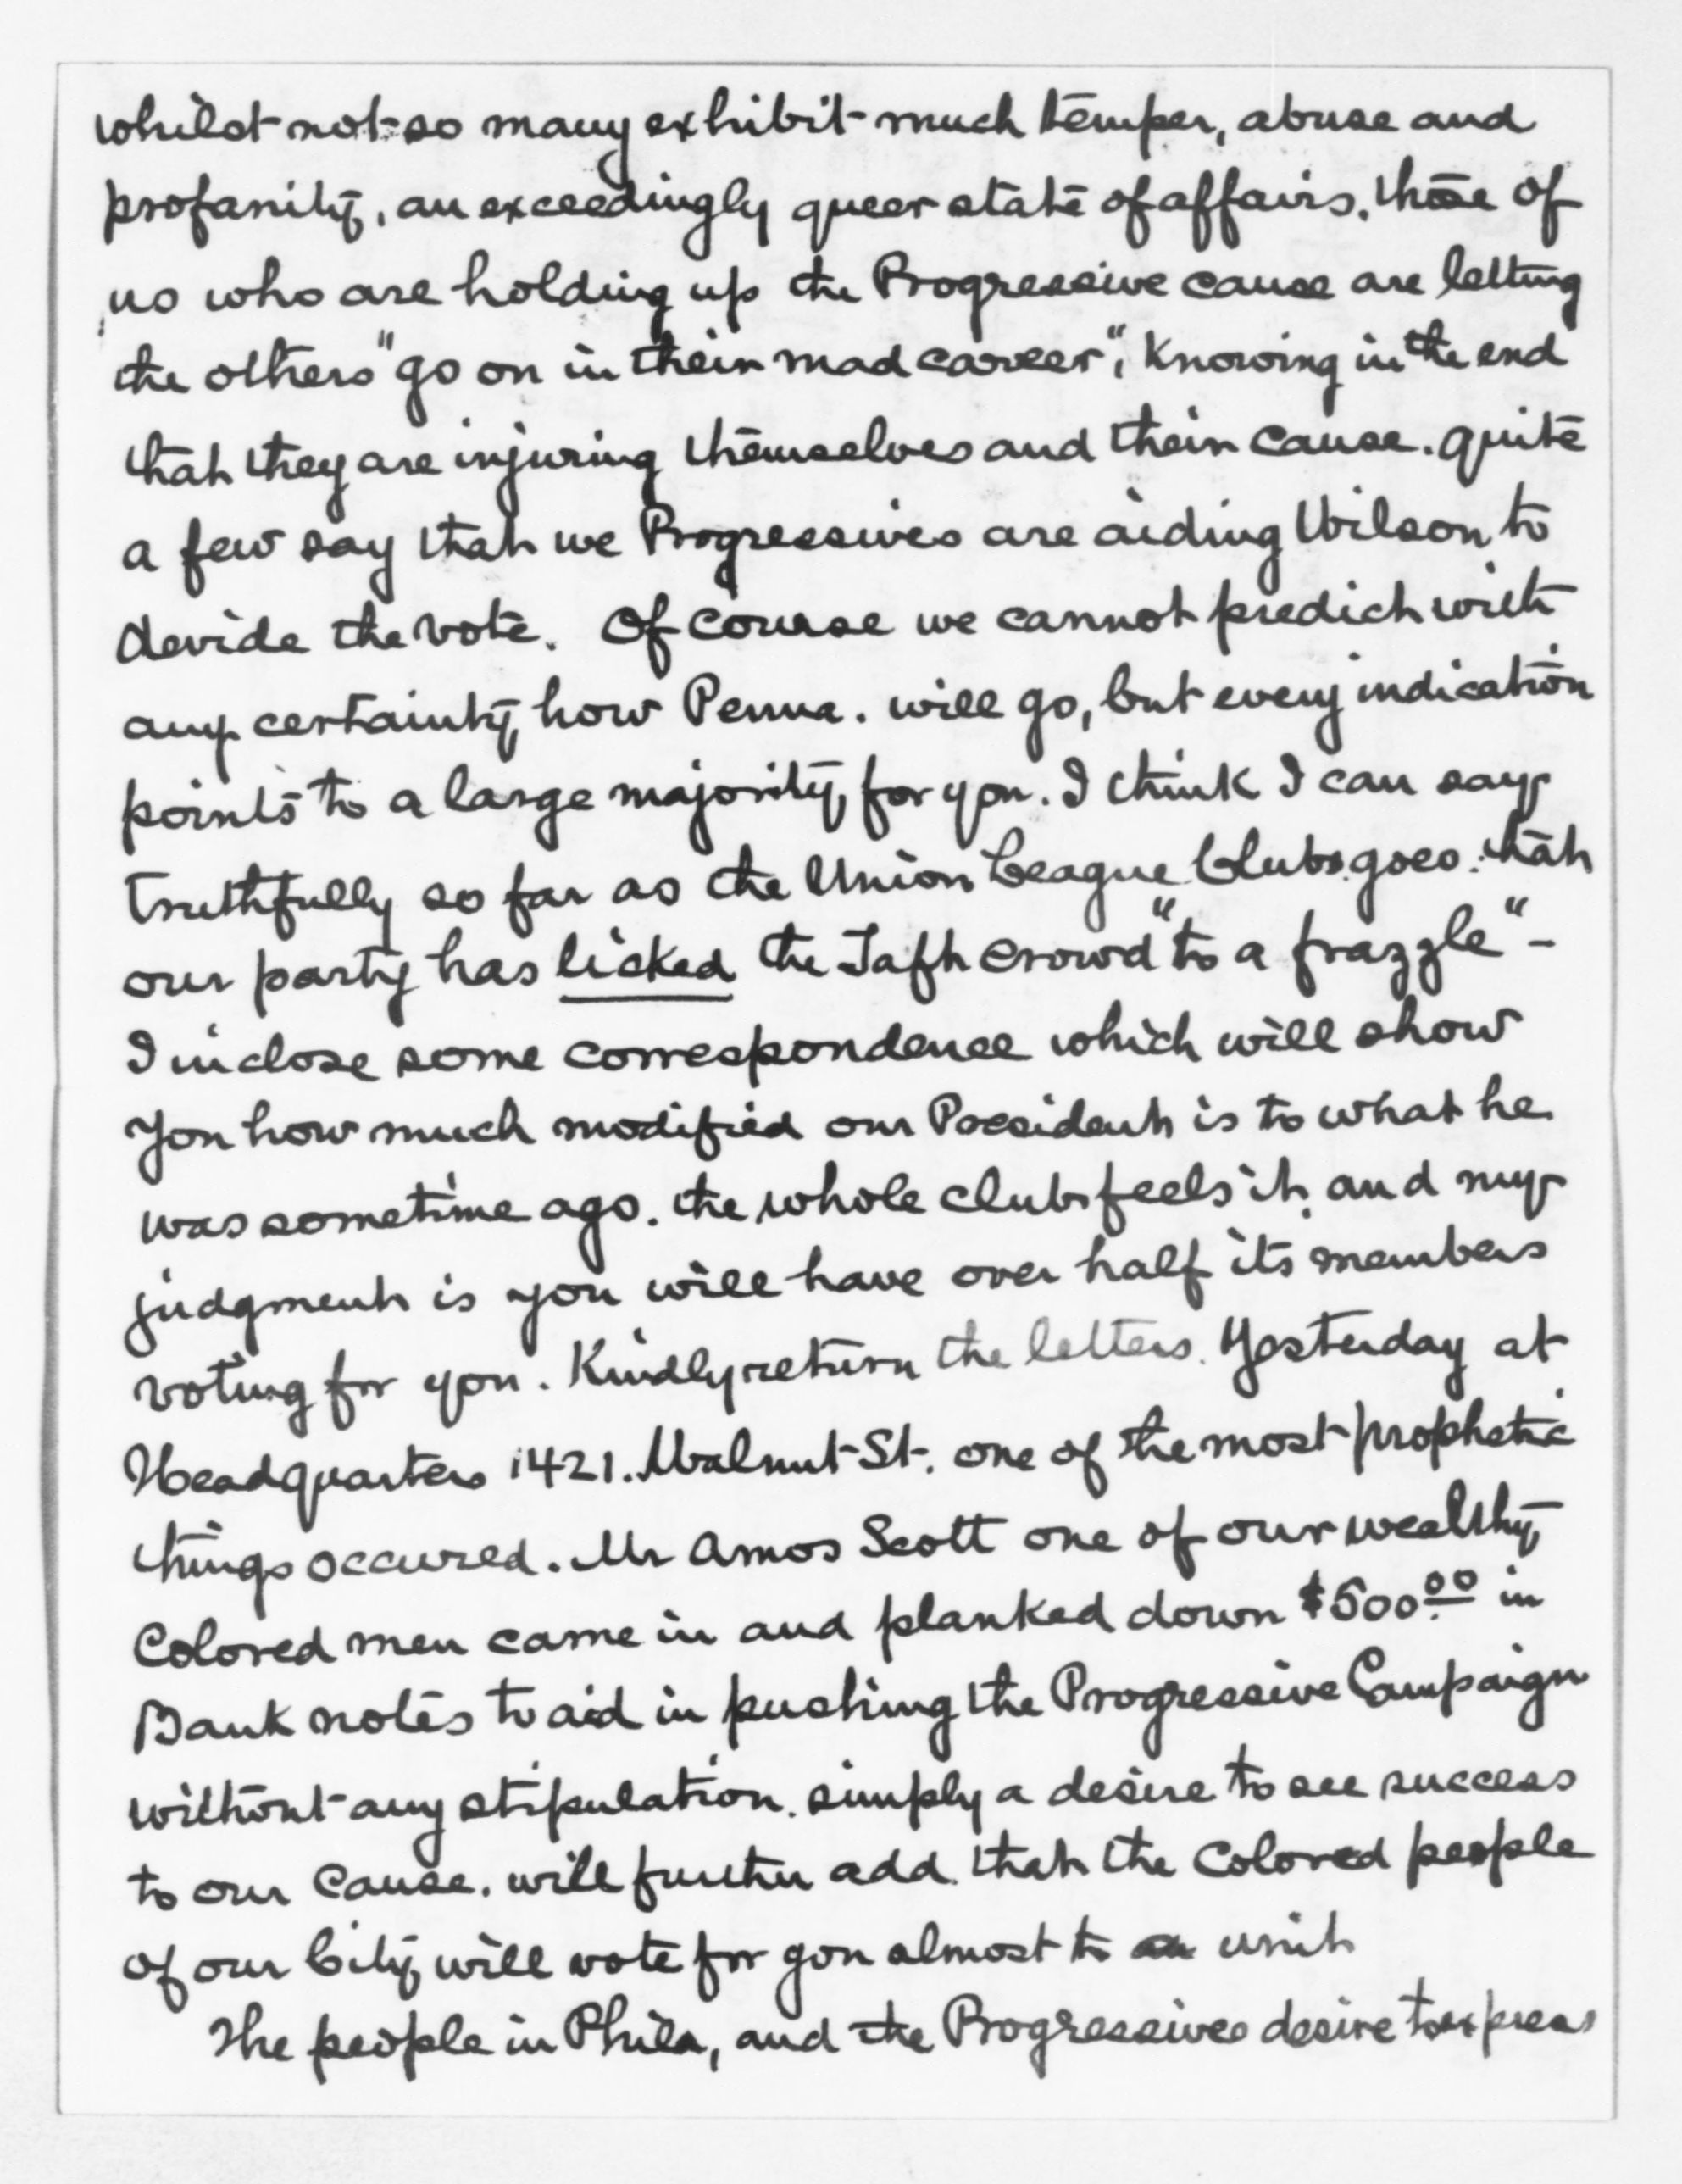 whilst not so many exhibit much temper, abuse and
profanity, an exceedingly queer state of affairs. those of
us who are holding up the Progressive cause are letting
the others "go on in their mad career", knowing in the end
that they are injuring themselves and their cause. quite
a few say that we Progressives are aiding Wilson to
devide the vote. Of course we cannot predict with
any certainty how Penna. will go, but every indication
points to a large majority for you. I think I can say
truthfully so far as the Union League Club goes. that
our party has licked the Taft crowd "to a frazzle" -
I inclose some correspondence which will show
you how much modified our President is to what he
was sometime ago. the whole club feels it, and my
judgment is you will have over half its members
voting for you. Kindly return the letters. Yesterday at
Headquarters 1421. Walnut St. one of the most prophetic
things occured. Mr Amos Scott one of our wealthy
Colored men came in and planked down $500.00 in
Bank notes to aid in pushing the Progressive Campaign
without any stipulation. simply a desire to see success
to our cause. will further add that the Colored people
of our City will vote for you almost to a unit
The people in Phila, and the Progressives desire to express